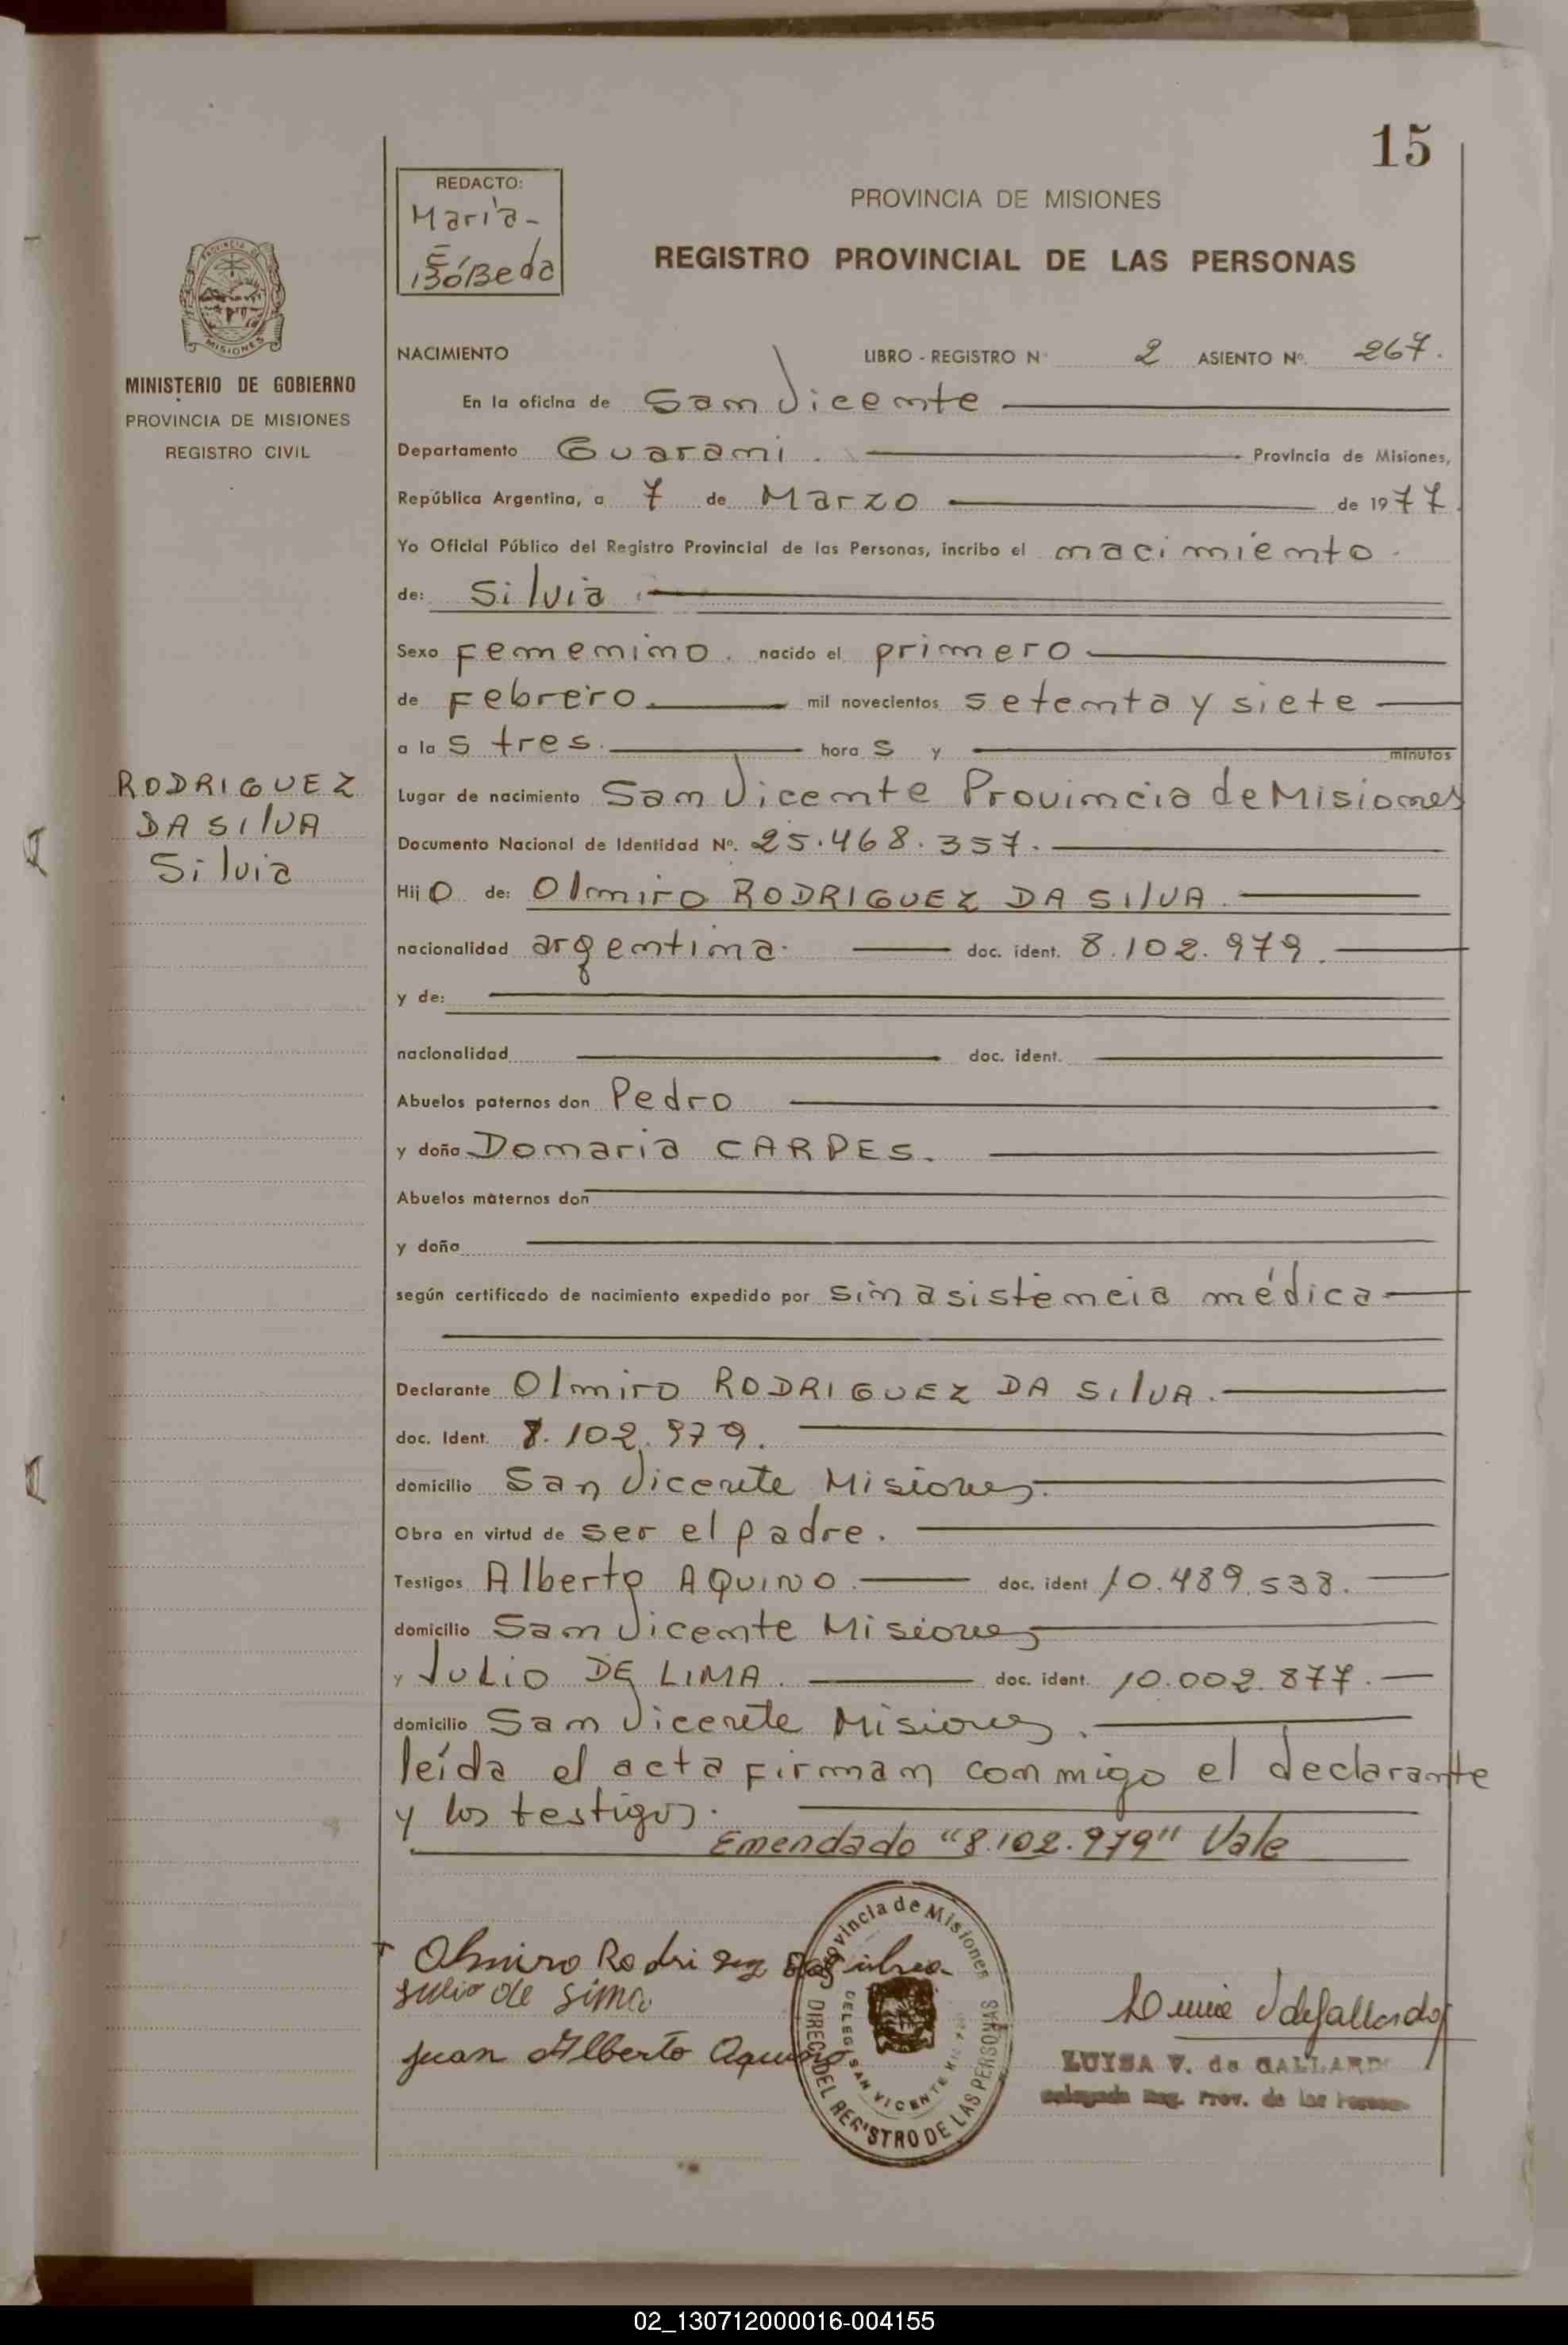 15
REDACTO:
Maria
E
BóBeda
PROVINCIA DE MISIONES
REGISTRO PROVINCIAL DE LAS PERSONAS
MISIONES
MINISTERIO DE GOBIERNO
PROVINCIA DE MISIONES
REGISTRO CIVIL
NACIMIENTO LIBRO - REGISTRO Nº 2 ASIENTO Nº. 267.
En la oficina de San Vicente
Departamento Guarani. Provincia de Misiones,
República Argentina, a 7 de Marzo de 1977.
Yo Oficial Público del Registro Provincial de las Personas, incribo el nacimiento.
de: Silvia
Sexo Femenino. nacido el primero
de Febrero. mil novecientos setenta y siete
a las tres. horas y minutos
RODRIGUEZ
DA SILVA
Silvia
Lugar de nacimiento San Vicente Provincia de Misiones
Documento Nacional de Identidad Nº. 25.468.357.
Hijo de: Olmiro RODRIGUEZ DA SILVA.
nacionalidad argentina. doc. ident. 8.102.979.
y de:
nacionalidad doc. ident.
Abuelos paternos don Pedro
y doña Domaria CARPES.
Abuelos maternos don
y doña
según certificado de nacimiento expedido por sin asistencia médica
Declarante Olmiro RODRIGUEZ DA SILVA.
doc. Ident. 8.102.979.
domicilio San Vicente Misiones.
Obra en virtud de ser el padre.
Testigos Alberto AQUINO. doc. ident 10.489.538.
domicilio San Vicente Misiones
y JULIO DE LIMA. doc. ident. 10.002.877.
domicilio San Vicente Misiones.
leída el acta firman conmigo el declarante
y los testigos.
Emendado "8.102.979" Vale
Olmiro Rodriguez Da Silva
Julio de Lima
Juan Alberto Aquino
Provincia de Misiones
DIREC. DEL REGISTRO DE LAS PERSONAS
DELEG. SAN VICENTE
LUISA V. de GALLARDO
Delegada Reg. Prov. de las Personas
02_130712000016-004155